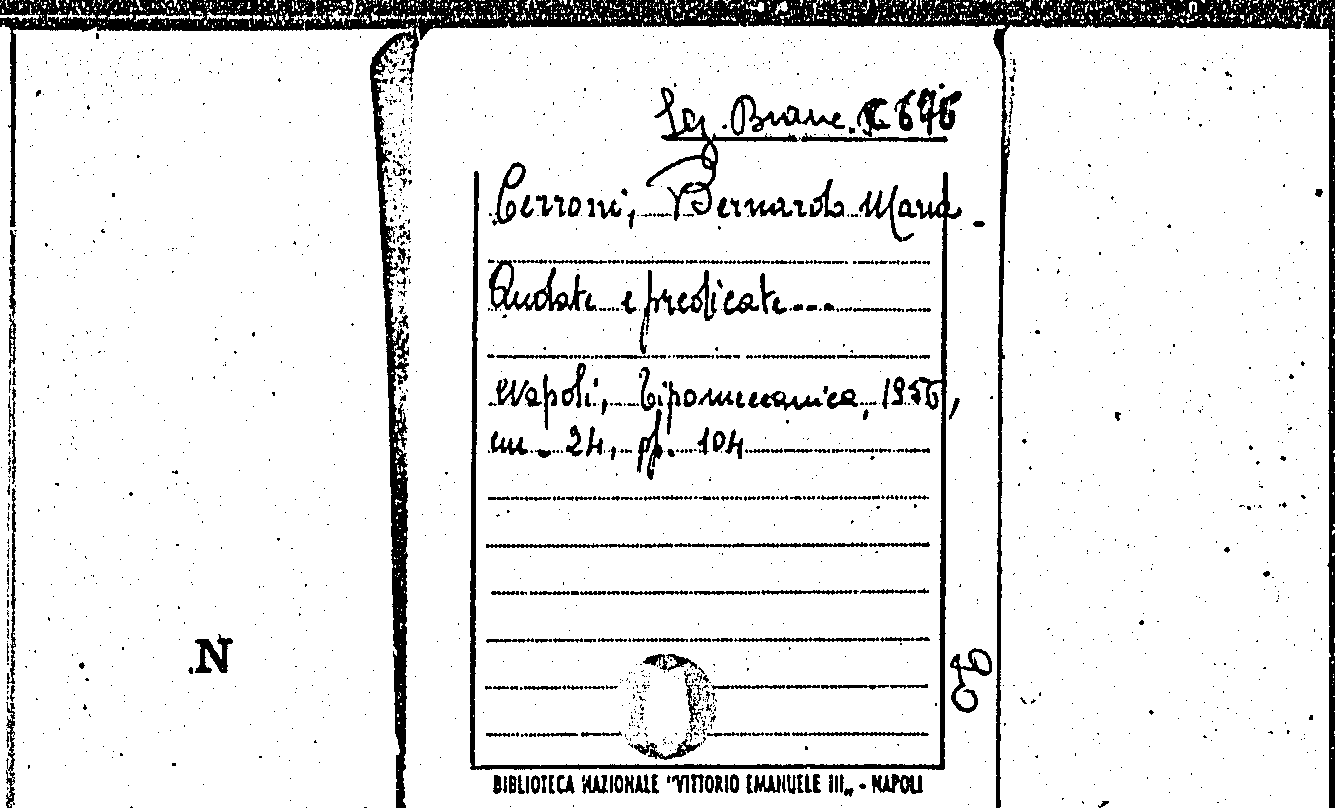 Leg. Branc. C 676
Cerroni, Bernardo Maria.
Andate e predicate...
Napoli, Tipomeccanica, 1956,
cm. 24, pp. 104
N
90
BIBLIOTECA NAZIONALE "VITTORIO EMANUELE III„ - NAPOLI